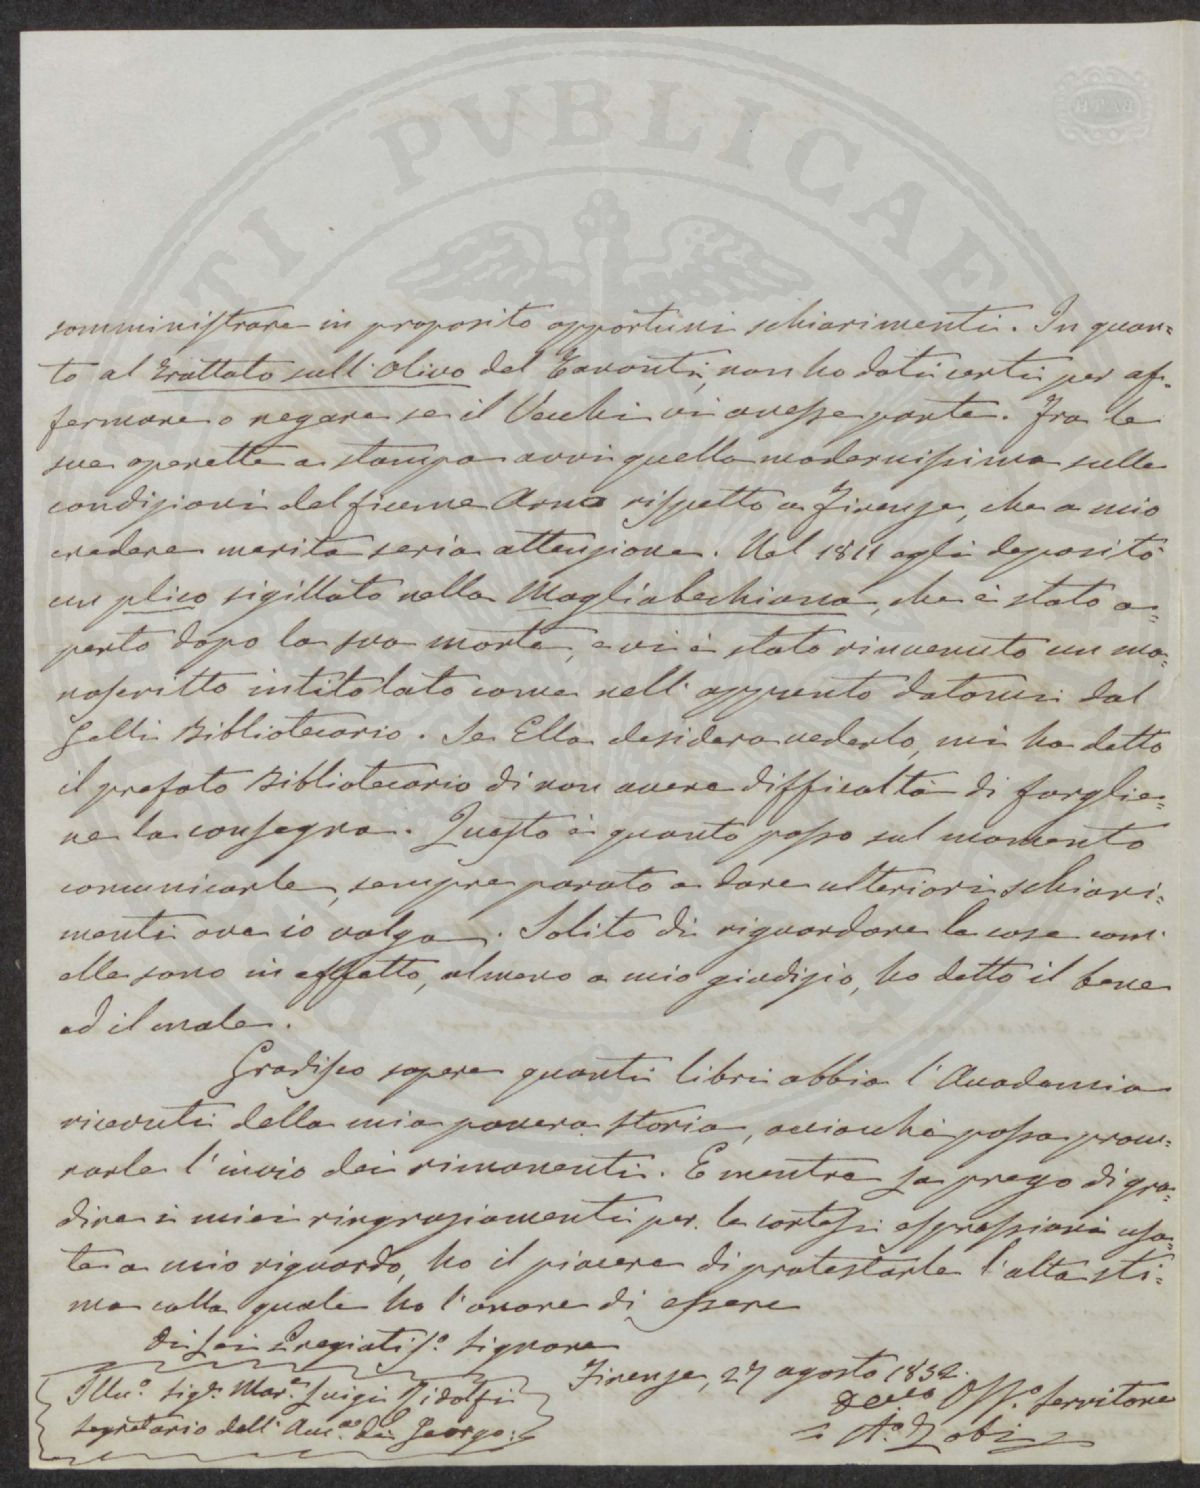 PVBLICAE
BATH
somministrare in proposito opportuni schiarimenti. In quan=
to al Trattato sull'Olivo del Tavanti, non ho dati certi per af=
fermare o negare se il Vecchi vi avesse parte. Fra le
sue operette a stampa avvi quella modernissima sulle
condizioni del fiume Arno rispetto a Firenze, che a mio
credere merita seria attenzione. Nel 1811 egli depositò
un plico sigillato nella Magliabechiana, che è stato a=
perto dopo la sua morte, e vi è stato rinvenuto un ma=
noscritto intitolato come nell'appunto datomi dal
Gelli Bibliotecario. Se Ella desidera vederlo, mi ha detto
il prefato Bibliotecario di non avere difficoltà di farglie=
ne la consegna. Questo è quanto posso sul momento
comunicarle, sempre parato a dare ulteriori schiari=
menti ove io valga. Solito di riguardare le cose com'
elle sono in effetto, almeno a mio giudizio, ho detto il bene
ed il male.
Gradisco sapere quanti libri abbia l'Accademia
ricevuti della mia povera storia, acciocchè possa procu=
rarle l'invio dei rimanenti. E mentre La prego di gra=
dire i miei ringraziamenti per le cortesi espressioni usa=
te a mio riguardo, ho il piacere di protestarle l'alta sti=
ma colla quale ho l'onore di essere
Di Lei Pregiatis.º Signore
Firenze, 27 agosto 1852.
Illu.º Sig.r Mar.e Luigi Ridolfi
Segretario dell'Acc.a dei Georgo:
Dev.o Oss.º Servitore
A.º Zobi